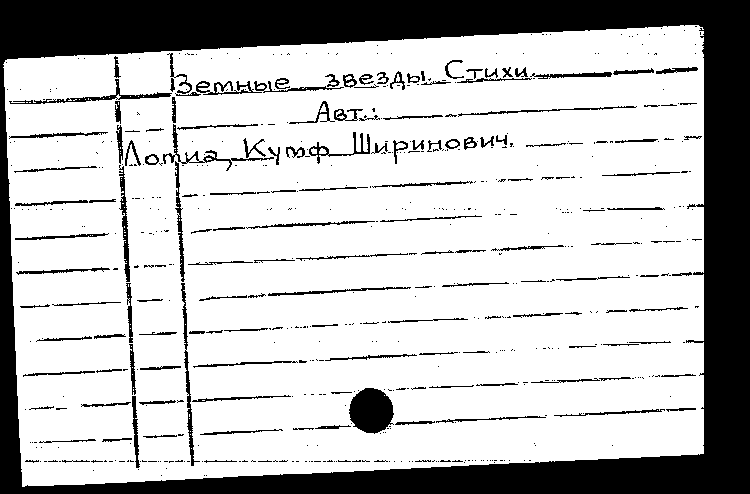 Земные звезды. Стихи.
Авт.:
Лотиа, Кутф Ширинович.